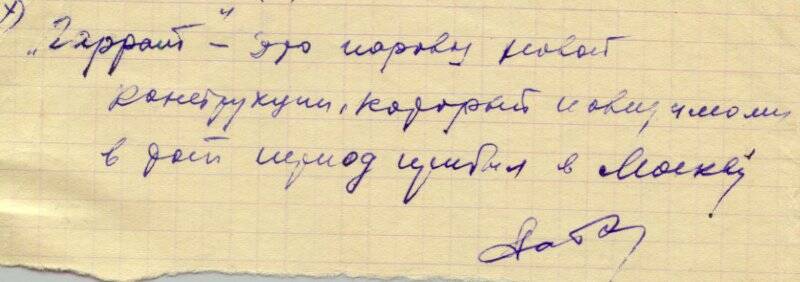 x) „Гаррат" – это паровоз новой
конструкции, который по видимому
в этот период прибыл в Москву